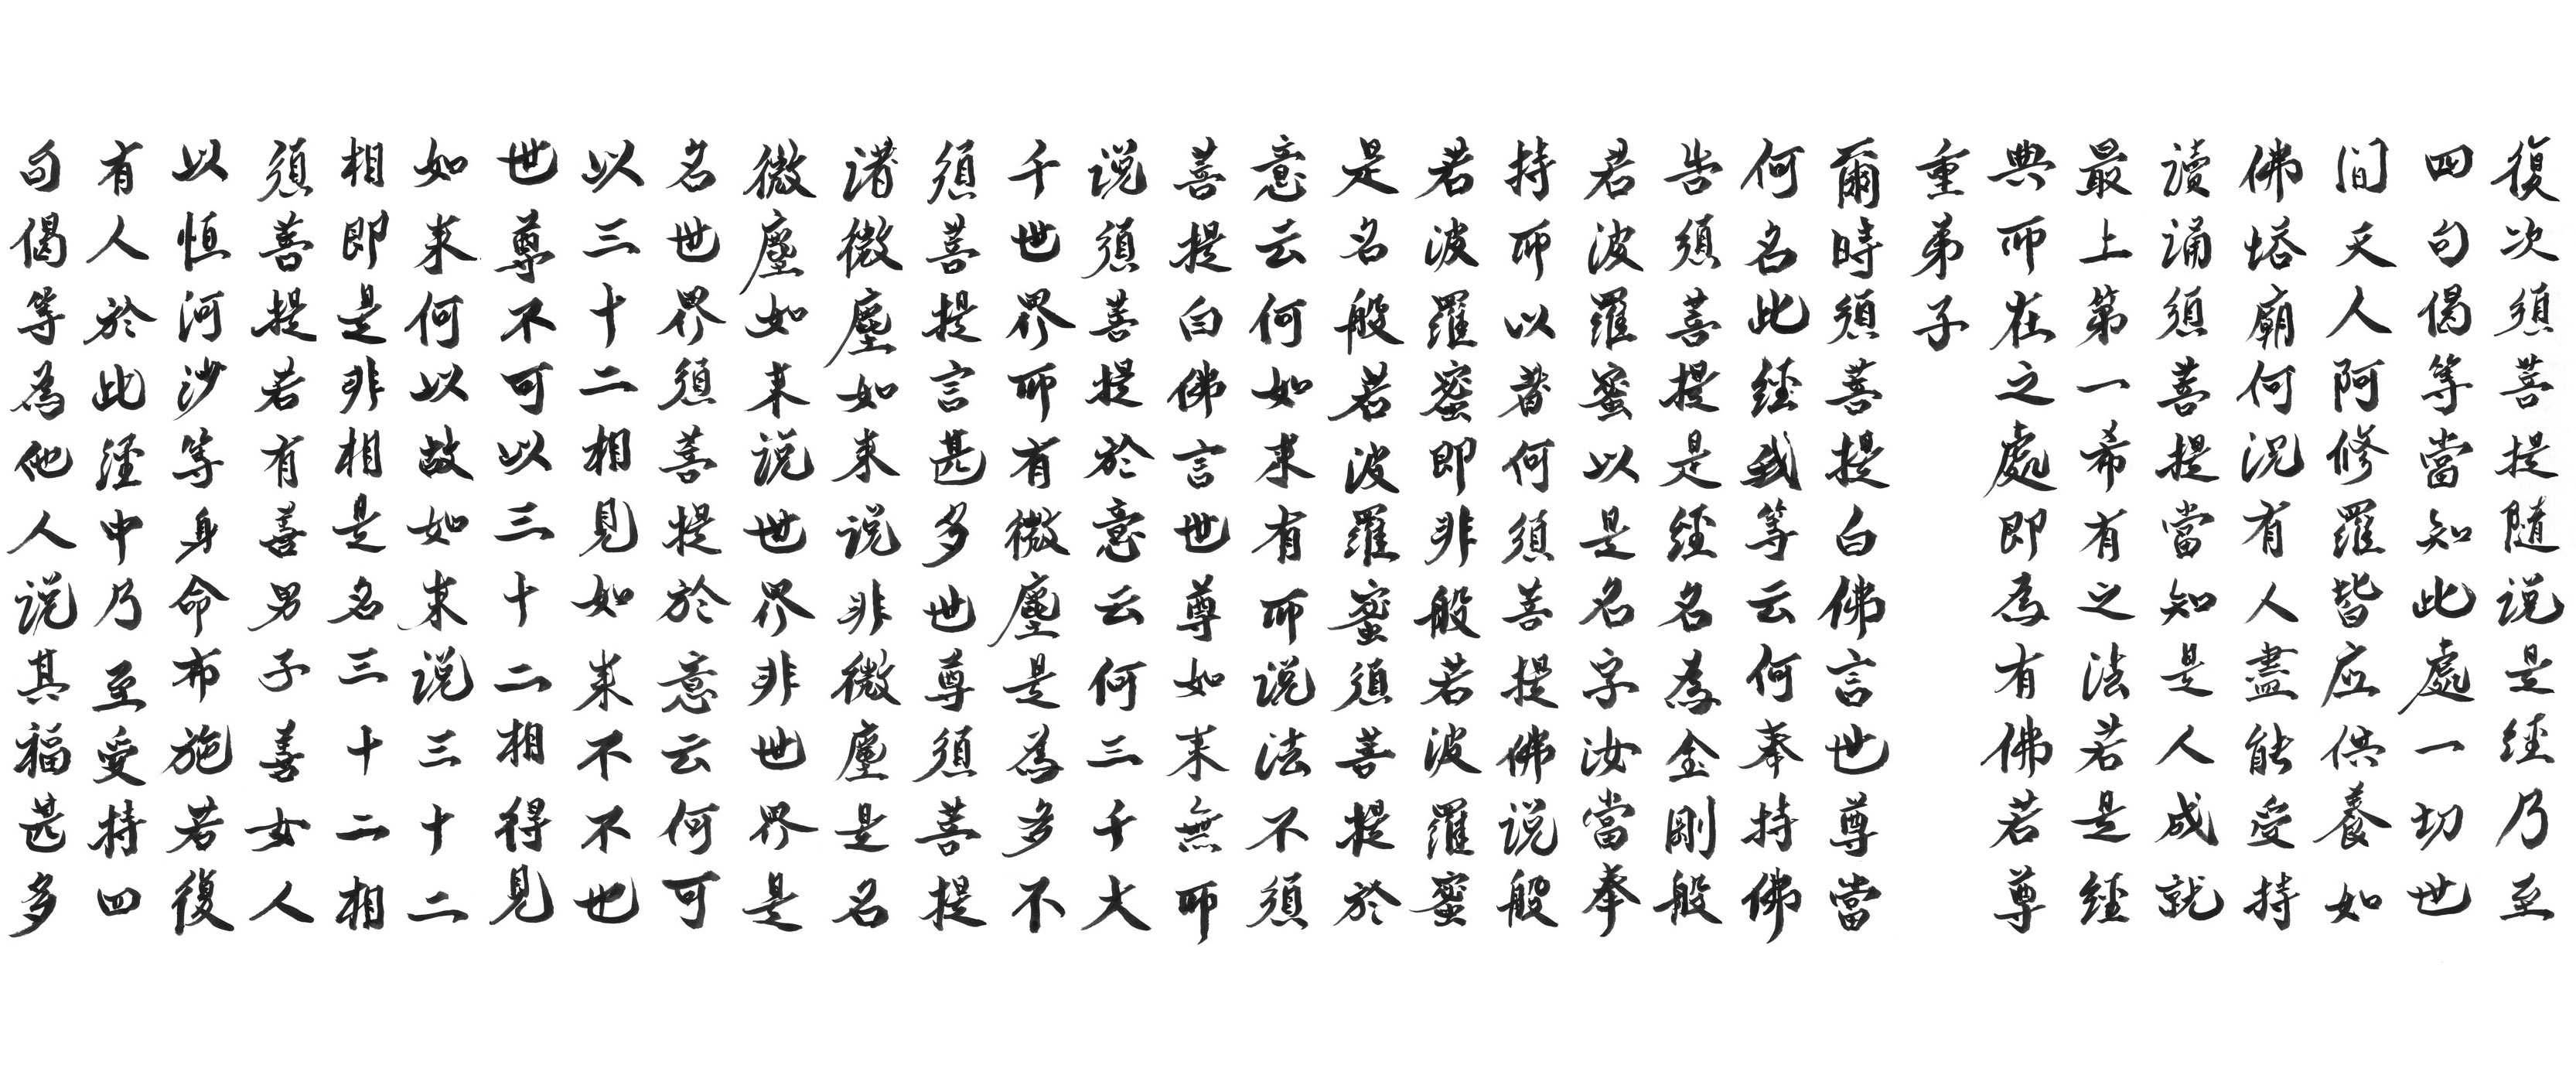 復次須菩提隨说是经乃至
四句偈等當知此處一切世
间天人阿修羅皆应供養如
佛塔廟何況有人盡能受持
讀诵須菩提當知是人成就
最上第一希有之法若是经
典所在之處即為有佛若尊
重弟子
爾時須菩提白佛言世尊當
何名此经我等云何奉持佛
告須菩提是经名為金剛般
若波羅蜜以是名字汝當奉
持所以者何須菩提佛说般
若波羅蜜即非般若波羅蜜
是名般若波羅蜜須菩提於
意云何如来有所说法不須
菩提白佛言世尊如来無所
说須菩提於意云何三千大
千世界所有微塵是為多不
須菩提言甚多世尊須菩提
诸微塵如来说非微塵是名
微塵如来说世界非世界是
名世界須菩提於意云何可
以三十二相見如来不不也
世尊不可以三十二相得見
如来何以故如来说三十二
相即是非相是名三十二相
須菩提若有善男子善女人
以恒河沙等身命布施若復
有人於此经中乃至受持四
句偈等為他人说其福甚多